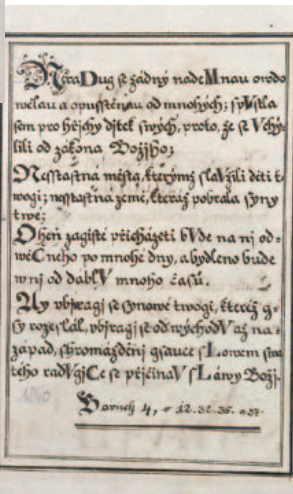 NeraDug se žádný nade Mnau owdo
wělau a opusstěnau od mnohých; spVstla
sem pro hřjchy djtek swých, proto, že se Vchý
lili od zákona Božjho;
Nesstastna města, kterýmž slaVžili děti t
wogi; nesstastna země, kteráž pobrala syny
twe;
Oheň zagisté přicházeti bVde na ni od
wěčneho po mnohe dny, a bydleno bude
w nj od dáblV mnoho časů.
Ay vbjragi se synowe twogi, kterež g
sy rozeslal, vbjragi se od wýchodV až na
západ, shromážděnj gsauce sLowem swa
tého radVgjCe se přjčinaV sLáwy Božj.
Baruch 4, v 12. 32. 35. a 37.
ANO